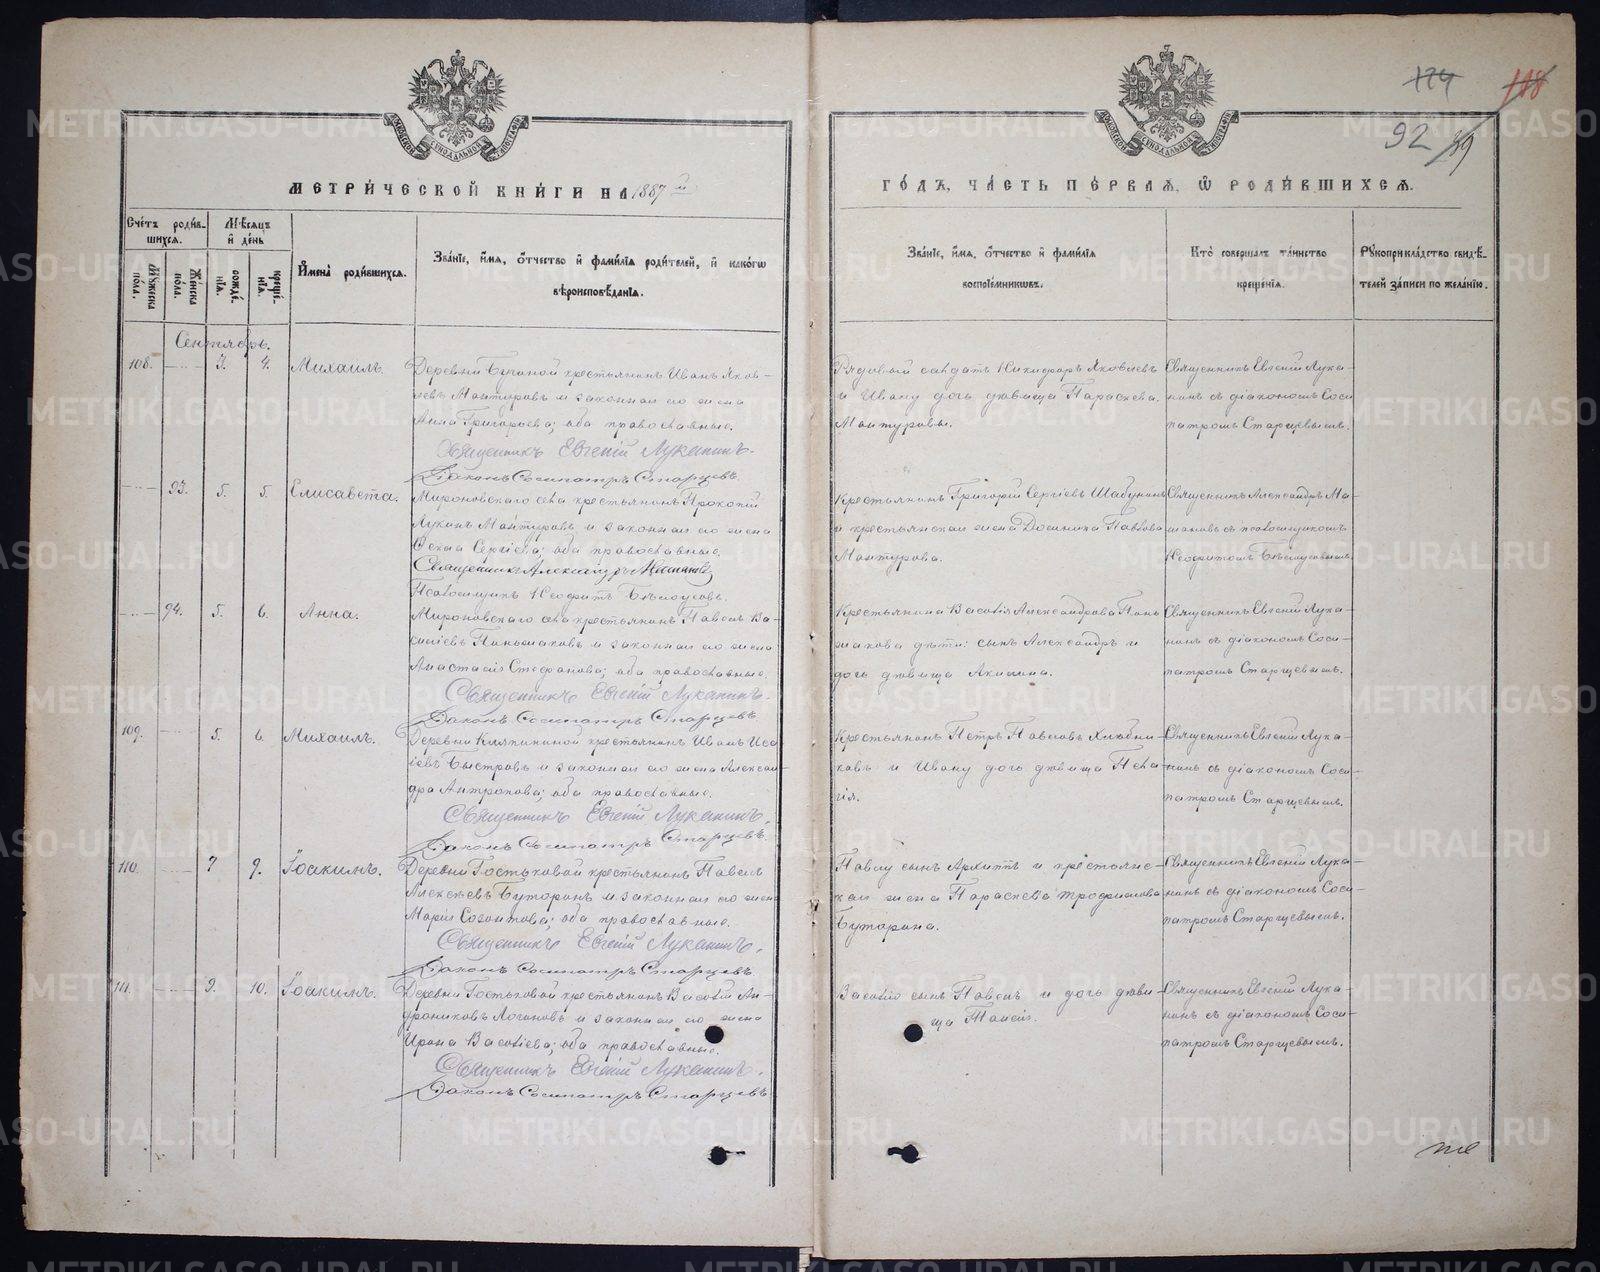 124
118
92
89
МЕТРИ́ЧЕСКОЙ КНИ́ГИ НА 1887 й
ГО́ДЪ, ЧА́СТЬ ПЕ́РВАЯ, Ѡ РОДИ́ВШИХСЯ.
Сче́тъ роди́в-
шихся.
Му́жеска по́ла.
Же́нска по́ла.
Мѣ́сяцъ
и҆ де́нь
рожде́-
нїя.
креще́-
нїя.
И҆мена̀ роди́вшихся.
Зва́нїе, и҆́мя, о҆́тчество и҆ фами́лїя роди́телей, и҆ како́гѡ
вѣроисповѣ́данїя.
Зва́нїе, и҆́мя, о҆́тчество и҆ фами́лїя
воспрїе́мникѡвъ.
Кто̀ соверша́лъ та́инство
креще́нїя.
Рꙋкоприкла́дство свидѣ́-
телей за́писи по жела́нїю.
Сентябрь.
108. 3. 4. Михаилъ.
Деревни Бучиной крестьянинъ Иванъ Яков-
левъ Мантуровъ и законная его жена
Анна Григорьева; оба православные.
Священникъ Евгеній Луканинъ.
Діаконъ Сосипатръ Старцевъ.
Рядовый солдатъ Никифоръ Яковлевъ
и Ивану дочь дѣвица Параскева
Мантуровы.
Священникъ Евгеній Лука-
нинъ съ діакономъ Соси-
патромъ Старцевымъ.
93. 5. 5. Елисавета.
Мироновскаго села крестьянинъ Прокопій
Лукинъ Мантуровъ и законная его жена
Ѳекла Сергіева; оба православные.
Священникъ Александръ
Псаломщикъ Неофитъ Бѣлоусовъ.
Крестьянинъ Григорій Сергіевъ Шабунинъ
и крестьянская жена Домника Павлова
Мантурова.
Священникъ Александръ
съ псаломщикомъ
Неофитомъ Бѣлоусовымъ
94. 5. 6. Анна.
Мироновскаго села крестьянинъ Павелъ Ва-
силіевъ Паньшаковъ и законная его жена
Анастасія Стефанова; оба православные.
Священникъ Евгеній Луканинъ.
Діаконъ Сосипатръ Старцевъ.
Крестьянина Василія Александрова Пань-
шакова дѣти: сынъ Александръ и
дочь дѣвица Акилина.
Священникъ Евгеній Лука-
нинъ съ діакономъ Соси-
патромъ Старцевымъ.
109. 5. 6. Михаилъ.
Деревни крестьянинъ Иванъ Иса-
іевъ Быстровъ и законная его жена Алексан-
дра Антропова; оба православные.
Священникъ Евгеній Луканинъ.
Діаконъ Сосипатръ Старцевъ.
Крестьянинъ Петръ Павловъ
и Ивану дочь дѣвица Пела-
гія.
Священникъ Евгеній Лука-
нинъ съ діакономъ Соси-
патромъ Старцевымъ.
110. 7 9. Іоакимъ.
Деревни Гостьковой крестьянинъ Павелъ
Алексѣевъ Бутаринъ и законная его жена
Марія Созонтова; оба православные.
Священникъ Евгеній Луканинъ.
Діаконъ Сосипатръ Старцевъ.
Павлу сынъ Архиппъ и крестьянс-
кая жена Параскева Трофимова
Бутарина.
Священникъ Евгеній Лука-
нинъ съ діакономъ Соси-
патромъ Старцевымъ.
111. 9. 10. Іоакимъ.
Деревни Гостьковой крестьянинъ Василій Ан-
дрониковъ Логиновъ и законная его жена
Ирина Василіева; оба православные.
Священникъ Евгеній Луканинъ.
Діаконъ Сосипатръ Старцевъ
Василію сынъ Павелъ и дочь дѣви-
ца Таисія.
Священникъ Евгеній Лука-
нинъ съ діакономъ Соси-
патромъ Старцевымъ.
METRIKI.GASO-URAL.RU